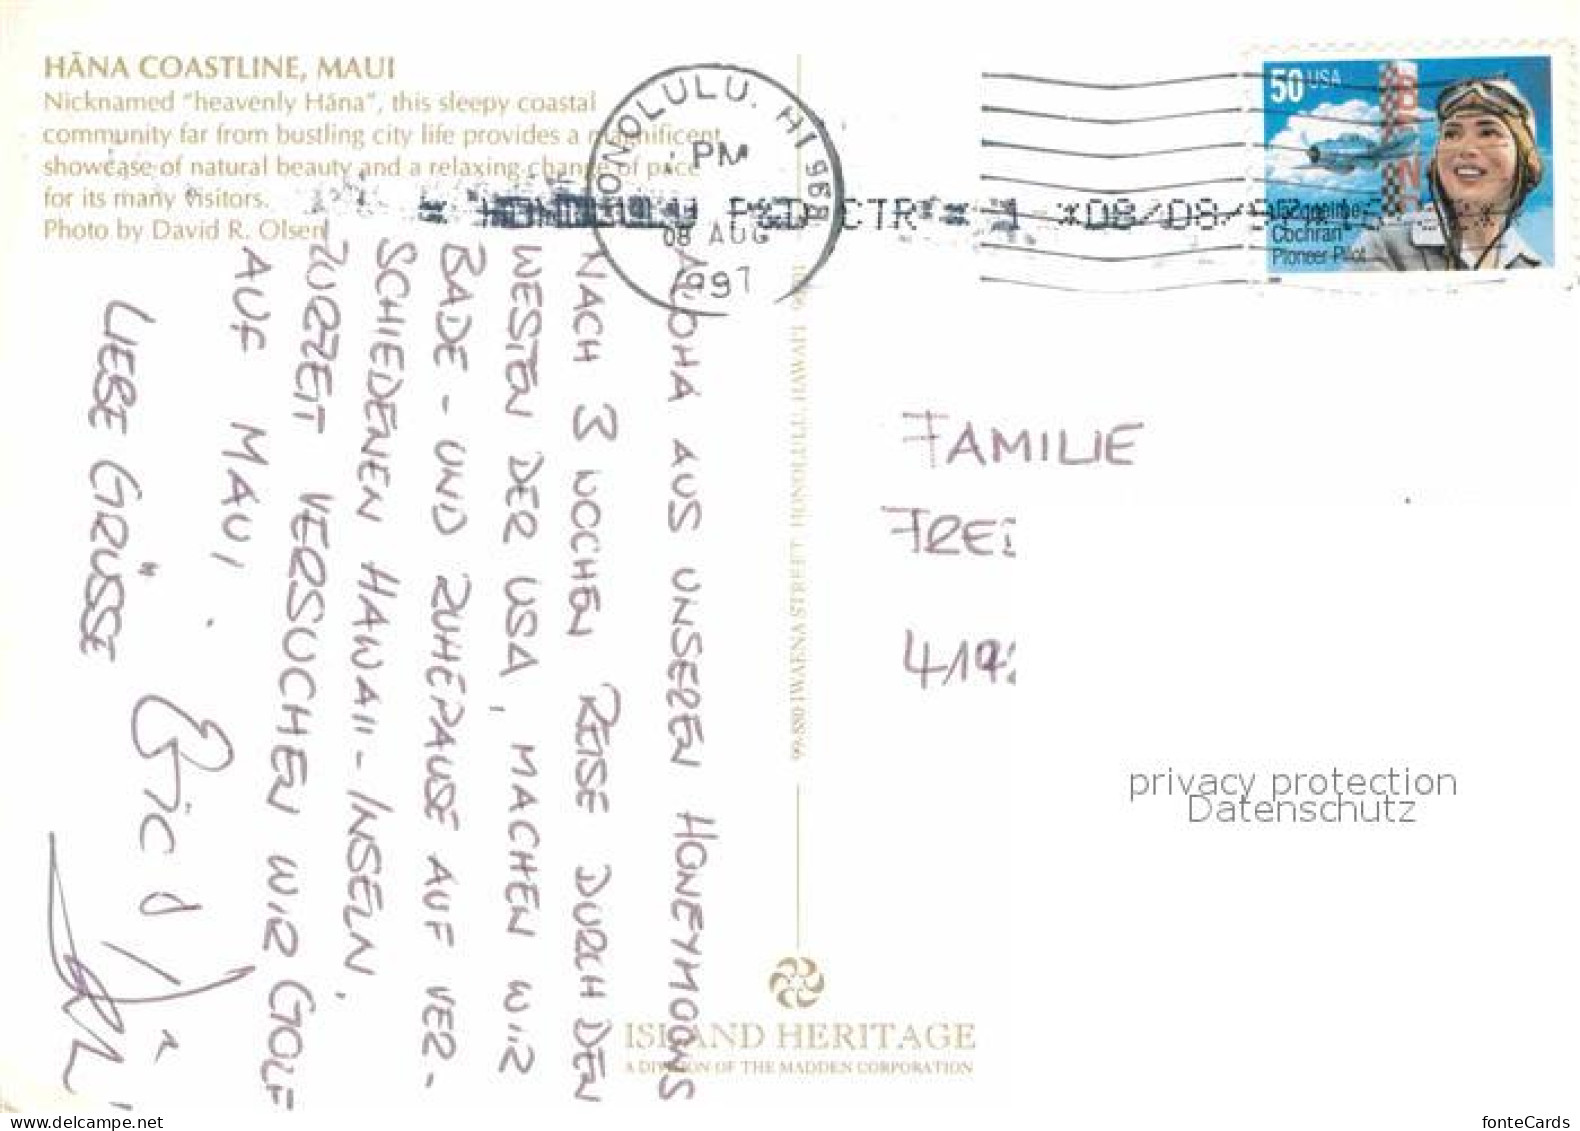 HĀNA COASTLINE, MAUI
Nicknamed "heavenly Hāna", this sleepy coastal
community far from bustling city life provides a magnificent
showcase of natural beauty and a relaxing change of pace
for its many visitors.
Photo by David R. Olsen
HONOLULU, HI 968
PM
08 AUG
1997
HONOLULU P&D CTR * 1 *08/08/
50 USA
Jacqueline
Cochran
Pioneer Pilot
ALOHA AUS UNSEREN HONEYMOONS
NACH 3 WOCHEN REISE DURCH DEN
WESTEN DER USA, MACHEN WIR
BADE - UND RUHEPAUSE AUF VER-
SCHIEDENEN HAWAII - INSELN,
ZURZEIT VERSUCHEN WIR GOLF
AUF MAUI.
LIEBE GRÜSSE
99-880 IWAENA STREET HONOLULU, HAWAI'I
FAMILIE
FREI
ISLAND HERITAGE
A DIVISION OF THE MADDEN CORPORATION
privacy protection
Datenschutz
www.delcampe.net
fonteCards